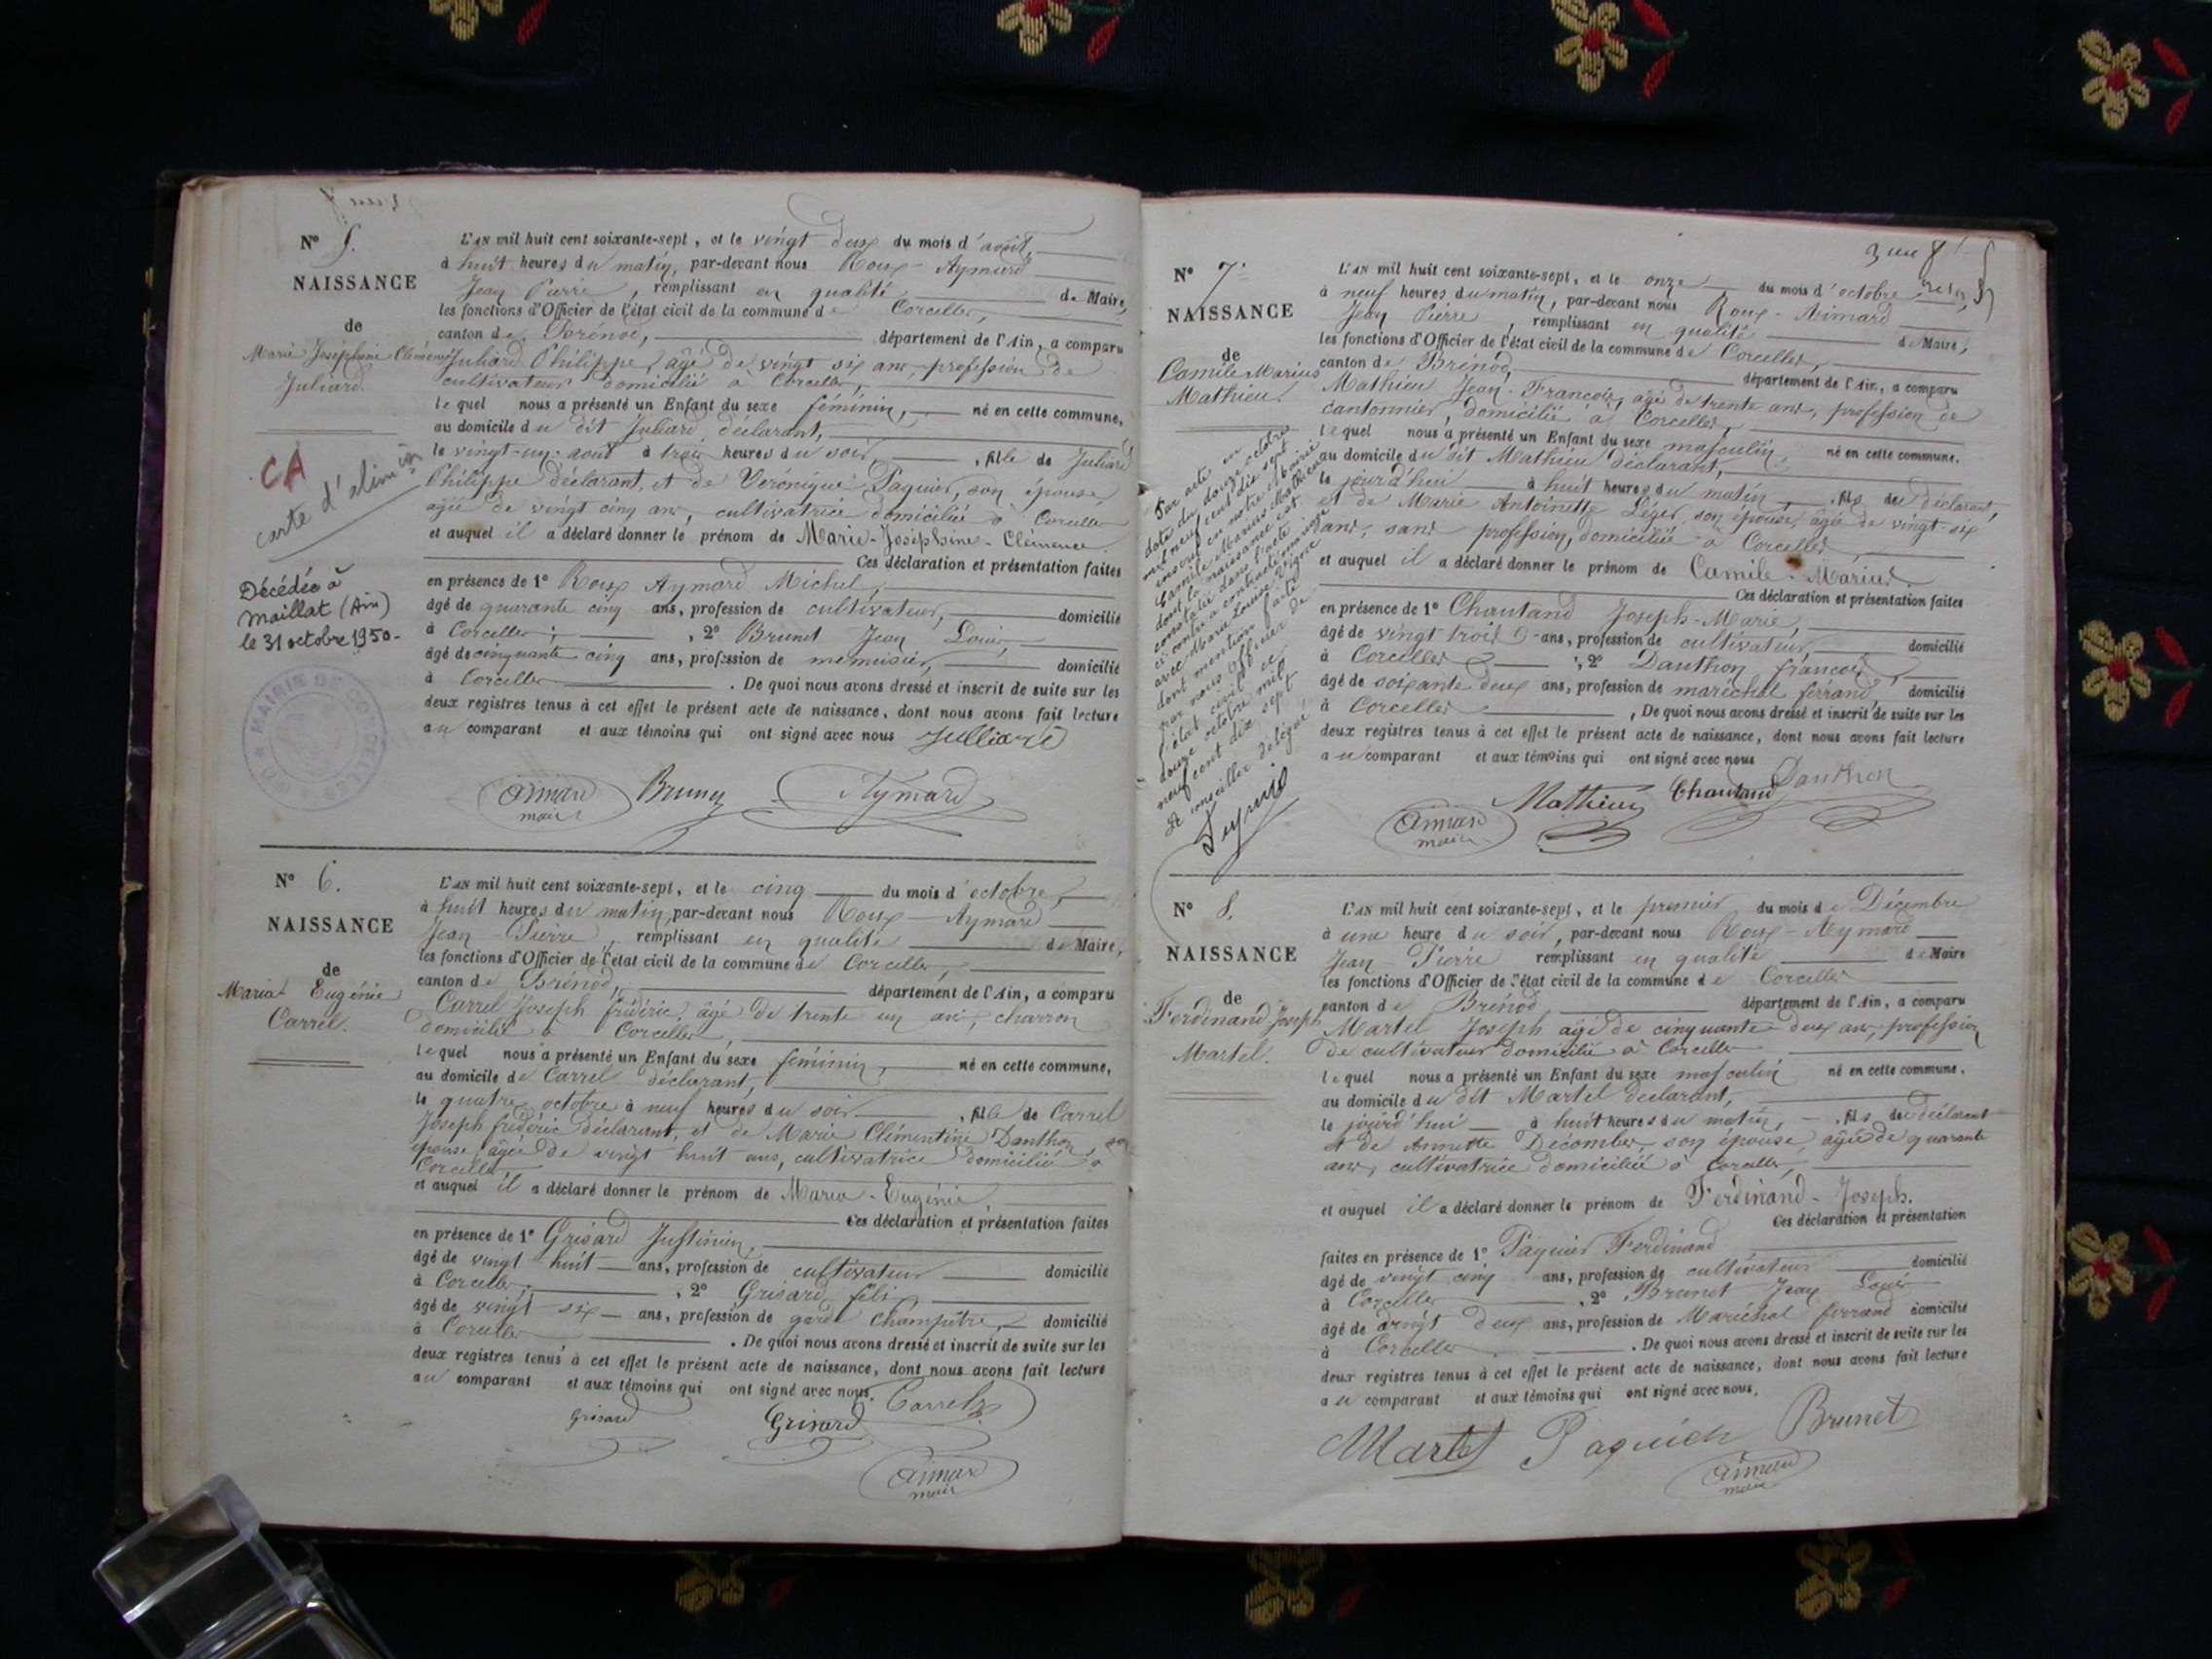 N° 5.
NAISSANCE
de
Marie Joséphine Clémence
Juliard.
CA
carte d'alim
Décédée à
Maillat (Ain)
le 31 octobre 1950-
MAIRIE DE CORCELLES
L'AN mil huit cent soixante-sept, et le vingt deux du mois d'août,
à huit heures du matin, par-devant nous Roux - Aymard
Jean Pierre, remplissant en qualité de Maire,
les fonctions d'Officier de l'état civil de la commune de Corcelles,
canton de Brénod, département de l'Ain, a comparu
Juliard Philippe, âgé de vingt six ans, profession de
cultivateur domicilié à Corcelles,
lequel nous a présenté un Enfant du sexe féminin, né en cette commune,
au domicile du dit Juliard, déclarant,
le vingt-un août à trois heures du soir, fille de Juliard
Philippe déclarant, et de Véronique Paquier, son épouse,
agée de vingt cinq ans, cultivatrice domiciliée à Corcelles
et auquel il a déclaré donner le prénom de Marie-Joséphine-Clémence.
Ces déclaration et présentation faites
en présence de 1° Roux Aymard Michel,
âgé de quarante cinq ans, profession de cultivateur, domicilié
à Corcelles; , 2° Brunet Jean Louis,
âgé de cinquante cinq ans, profession de menuisier, domicilié
à Corcelles . De quoi nous avons dressé et inscrit de suite sur les
deux registres tenus à cet effet le présent acte de naissance, dont nous avons fait lecture
au comparant et aux témoins qui ont signé avec nous Julliard
Aimard Brunet Aymard
maire
N° 6.
NAISSANCE
de
Maria Eugénie
Carrel.
L'AN mil huit cent soixante-sept, et le cinq du mois d'octobre,
à huit heures du matin, par-devant nous Roux - Aymard
Jean - Pierre, remplissant en qualité de Maire,
les fonctions d'Officier de l'état civil de la commune de Corcelles,
canton de Brénod, département de l'Ain, a comparu
Carrel Joseph frédéric, âgé de trente un ans, charron
domicilié à Corcelles,
lequel nous a présenté un Enfant du sexe féminin, né en cette commune,
au domicile de Carrel déclarant,
le quatre octobre à neuf heures du soir , fille de Carrel
Joseph frédéric déclarant, et de Marie Clémentine Danthon, son
épouse, âgée de vingt huit ans, cultivatrice domiciliée à
Corcelles,
et auquel il a déclaré donner le prénom de Maria-Eugénie
Ces déclaration et présentation faites
en présence de 1° Grisard Justinien,
âgé de vingt huit ans, profession de cultivateur domicilié
à Corcelles; , 2° Grisard félix
âgé de vingt six ans, profession de garde champêtre, domicilié
à Corcelles . De quoi nous avons dressé et inscrit de suite sur les
deux registres tenus à cet effet le présent acte de naissance, dont nous avons fait lecture
au comparant et aux témoins qui ont signé avec nous. Carrel
Grisard Grisard
Aimard
maire
N° 7.
NAISSANCE
de
Camile Marius
Mathieu.
Par acte en
date du douze octobre
mil neuf cent dix sept
inscrit en notre Mairie
Camile Marius Mathieu
dont la naissance est
constatée dans l'acte
ci contre a contracté mariage
avec Marie Louise
dont mention faite
par nous officier de
l'état civil ce
douze octobre mil
neuf cent dix sept
Le conseiller délégué
L'AN mil huit cent soixante-sept, et le onze du mois d'octobre
à neuf heures du matin, par-devant nous Roux - Aimard
Jean Pierre, remplissant en qualité de Maire,
les fonctions d'Officier de l'état civil de la commune de Corcelles,
canton de Brénod, département de l'Ain, a comparu
Mathieu Jean-François, âgé de trente ans, profession de
cantonnier, domicilié à Corcelles,
lequel nous a présenté un Enfant du sexe masculin, né en cette commune.
au domicile du dit Mathieu déclarant,
le jourd'hui à huit heures du matin, fils du déclarant,
et de Marie Antoinette Léger, son épouse, âgée de vingt-six
ans, sans profession, domiciliée à Corcelles
et auquel il a déclaré donner le prénom de Camile-Marius.
Ces déclaration et présentation faites
en présence de 1° Chautand Joseph-Marie,
âgé de vingt trois ans, profession de cultivateur, domicilié
à Corcelles , 2° Danthon françois,
âgé de soixante deux ans, profession de maréchal ferrand, domicilié
à Corcelles , De quoi nous avons dressé et inscrit de suite sur les
deux registres tenus à cet effet le présent acte de naissance, dont nous avons fait lecture
au comparant et aux témoins qui ont signé avec nous
Mathieu Chautand Danthon
Aimard
maire
N° 8.
NAISSANCE
de
Ferdinand Joseph
Martel.
L'AN mil huit cent soixante-sept, et le premier du mois de Décembre
à une heure du soir, par-devant nous Roux - Aymard
Jean - Pierre remplissant en qualité de Maire
les fonctions d'Officier de l'état civil de la commune de Corcelles
canton de Brénod département de l'Ain, a comparu
Martel Joseph âgé de cinquante deux ans, profession
de cultivateur domicilié à Corcelles
lequel nous a présenté un Enfant du sexe masculin né en cette commune.
au domicile du dit Martel déclarant,
le jourd'hui à huit heures du matin, fils du déclarant
et de Annette Décomber, son épouse, âgée de quarante
ans, cultivatrice domiciliée à Corcelles,
et auquel il a déclaré donner le prénom de Ferdinand-Joseph.
Ces déclaration et présentation
faites en présence de 1° Paquier Ferdinand
âgé de vingt cinq ans, profession de cultivateur domicilié
à Corcelles , 2° Brunet Jean Louis
âgé de vingt deux ans, profession de Maréchal ferrand domicilié
à Corcelles . De quoi nous avons dressé et inscrit de suite sur les
deux registres tenus à cet effet le présent acte de naissance, dont nous avons fait lecture
au comparant et aux témoins qui ont signé avec nous.
Martel Paquier Brunet
Aimard
maire